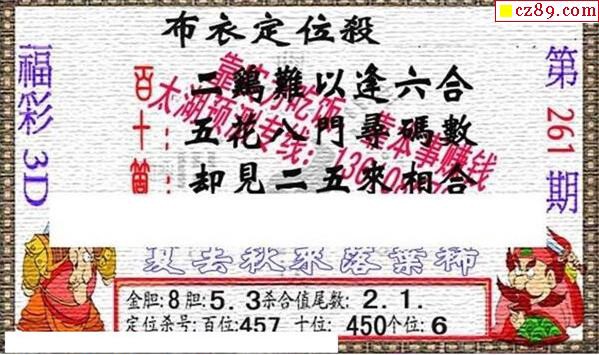 cz89.com
布衣定位殺
福彩 3D
第 261 期
百: 二鷄難以逢六合
十: 五花八門尋碼數
個: 却見二五來相合
靠实力吃饭 靠本事赚钱
太湖预测专线:
夏去秋来落葉稀
金胆:8胆:5.3杀合值尾数: 2.1.
定位杀号:百位:457 十位: 450个位:6